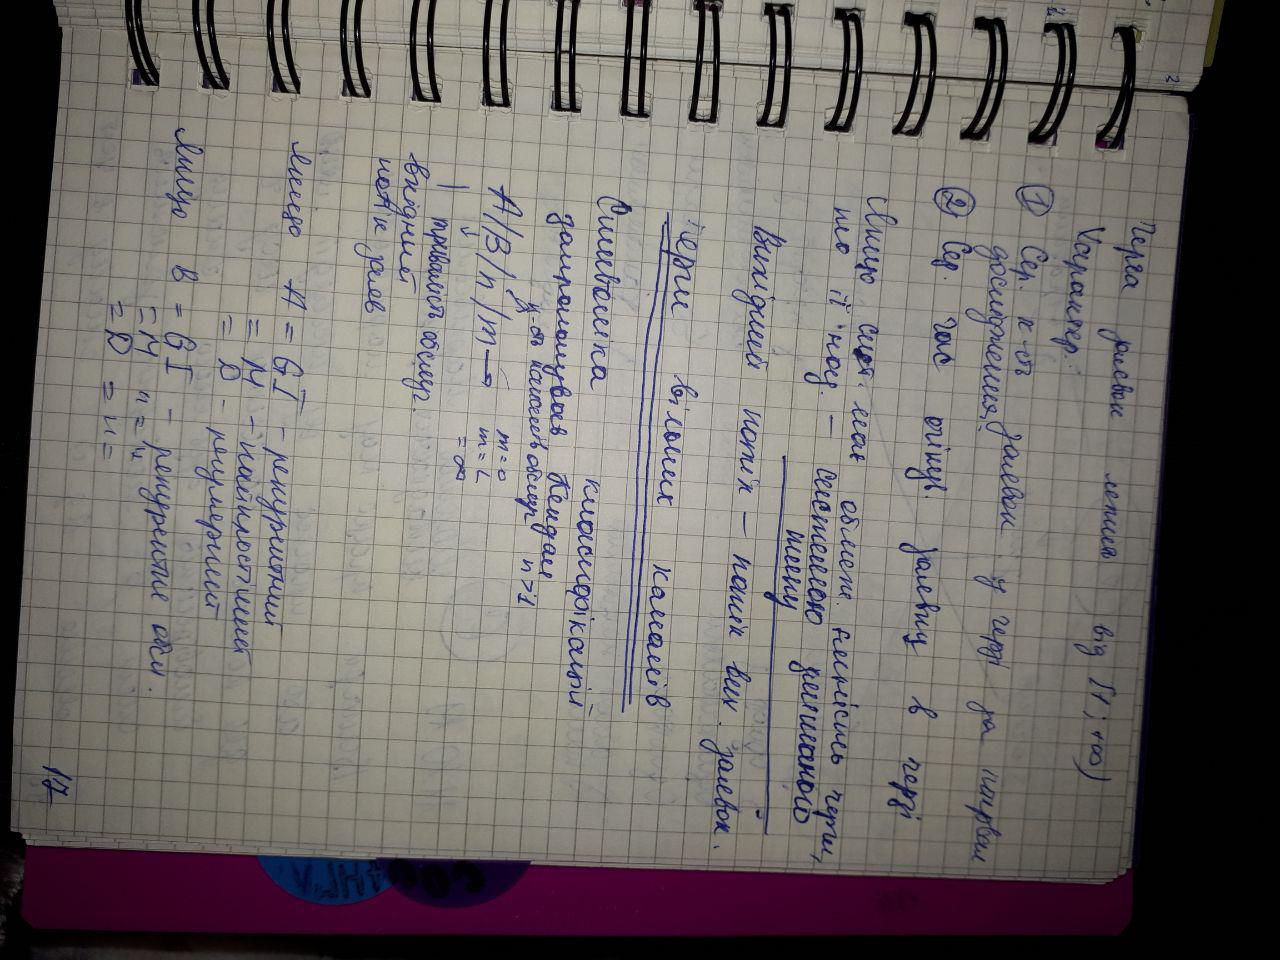 Черга заявок лежить від [1; +∞)
Характер.:
① Сер. к-сть заявок у черзі за інтервал
дослідження.
② Сер. час очікув. заявки в черзі
Якщо сист. має обмеж. ємність черги,
то її наз. — системою змішаного
типу
Вихідний потік — потік вих. заявок.
Черги вільних каналів
Символіка класифікацій
запропонував Кендал
к-сть каналів обслуг n>1
A/B/n/m → m=0
m=L
=∞
тривалість обслуг.
вхідний
потік заяв
Якщо A = GI – рекурентний
= M – найпростіший
= D – регулярний
Якщо B = GI – рекурентне обсл.
= M n = n
= D = n =
17